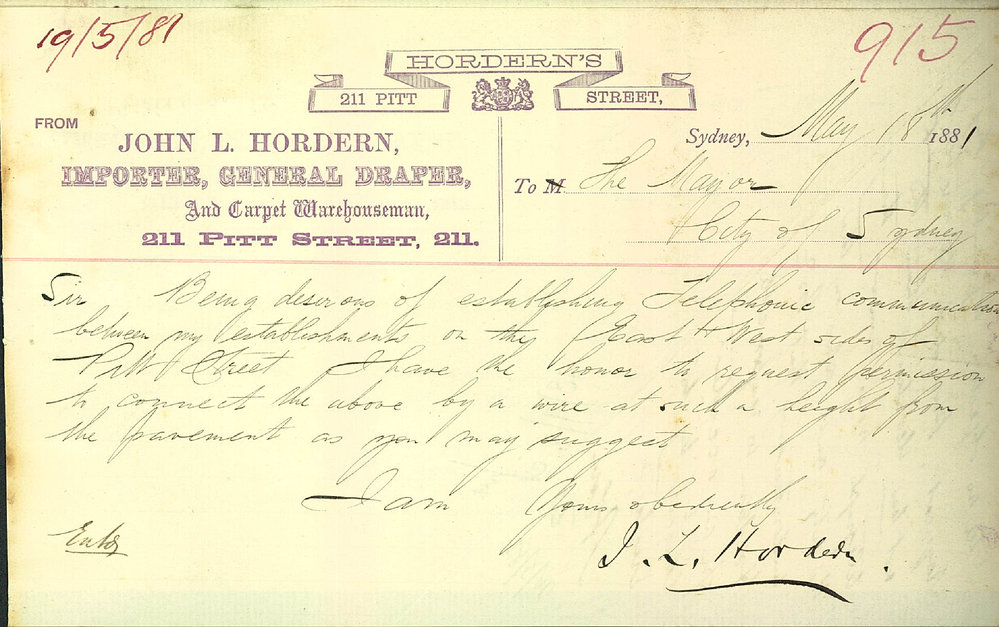 19/5/81
915
HORDERN'S
211 PITT STREET,
FROM
JOHN L. HORDERN,
IMPORTER, GENERAL DRAPER,
And Carpet Warehouseman,
211 PITT STREET, 211.
Sydney, May 18th 1881
To M The Mayor
City of Sydney
Sir Being desirous of establishing Telephonic communication
between my establishments on the East & West sides of
Pitt Street I have the honor to request permission
to connect the above by a wire at such a height from
the pavement as you may suggest
I am Yours obediently
J. L. Hordern.